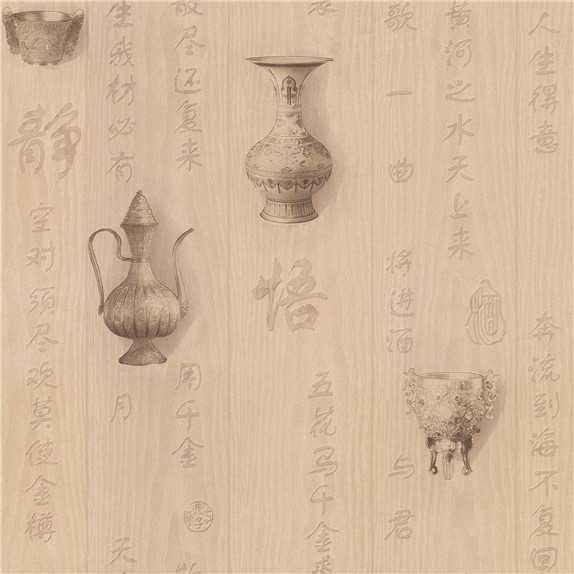 人生得意
奔流到海不复回
黄河之水天上来
歌一曲
将进酒
与君
五花马千金
悟
散尽还复来
用千金
生我材必有
月
天
静
空对须尽欢莫使金樽